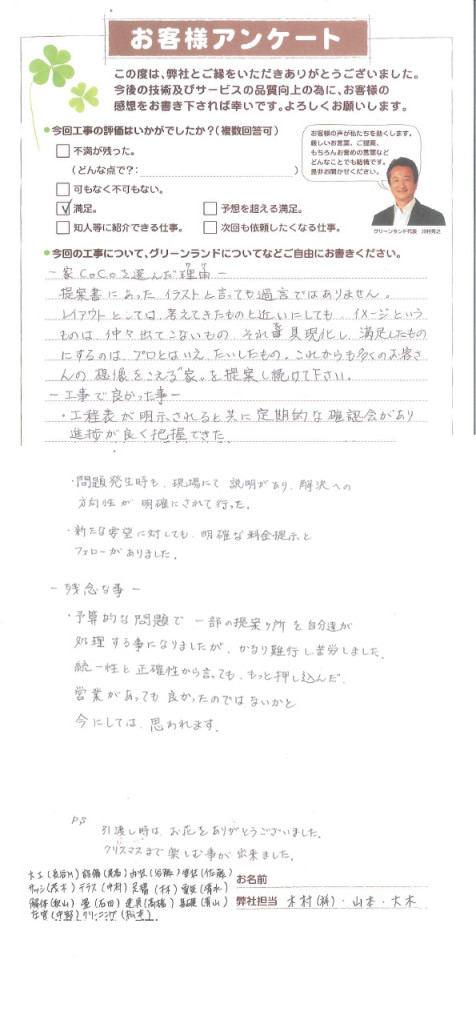 お客様アンケート
この度は、弊社とご縁をいただきありがとうございました。
今後の技術及びサービスの品質向上の為に、お客様の
感想をお書き下されば幸いです。よろしくお願いします。
●今回工事の評価はいかがでしたか？（複数回答可）
不満が残った。
（どんな点で？：　　　　　）
可もなく不可もない。
満足。
予想を超える満足。
知人等に紹介できる仕事。
次回も依頼したくなる仕事。
お客様の声が私たちを動くします。
厳しいお言葉、ご提案、
もちろんお誉めの言葉など
どんなことでも結構です。
是非お聞かせください。
グリーンランド代表　川村秀之
●今回の工事について、グリーンランドについてなどご自由にお書きください。
－家CoCoを選んだ理由－
提案書にあったイラストと言っても過言ではありません。
レイアウトとしては、考えてきたものと近いにしても、イメージという
ものは、仲々出てこないもの、それを具現化し、満足したもの
にするのは、プロとはいえ、たいしたもの。これからも多くのお客さ
んの想像をこえる"家"を提案し続けて下さい。
－工事で良かった事－
・工程表が明示されると共に定期的な確認会があり
進捗が良く把握できた。
・問題発生時も、現場にて説明があり、解決への
方向性が明確にされて行った。
・新たな要望に対しても、明確な料金提示と
フォローがありました。
－残念な事－
・予算的な問題で一部の提案ヶ所を自分達が
処理する事になりましたが、かなり難行し苦労しました。
統一性と正確性から言っても、もっと押し込んだ
営業があっても良かったのではないかと
今にしては思われます。
PS
引渡し時は、お花をありがとうございました。
クリスマスまで楽しむ事が出来ました。
大工(長谷川) 設備( ) 内装(佐藤) 塗装(佐藤)
サッシ(茂木) テラス(中村) 足場( 林) 電気(清水)
解体(秋山) 畳(石田) 建具(高橋) 基礎(青山)
左官(中野) クリーニング(松本)
お名前
弊社担当 木村(科)・山本・大木